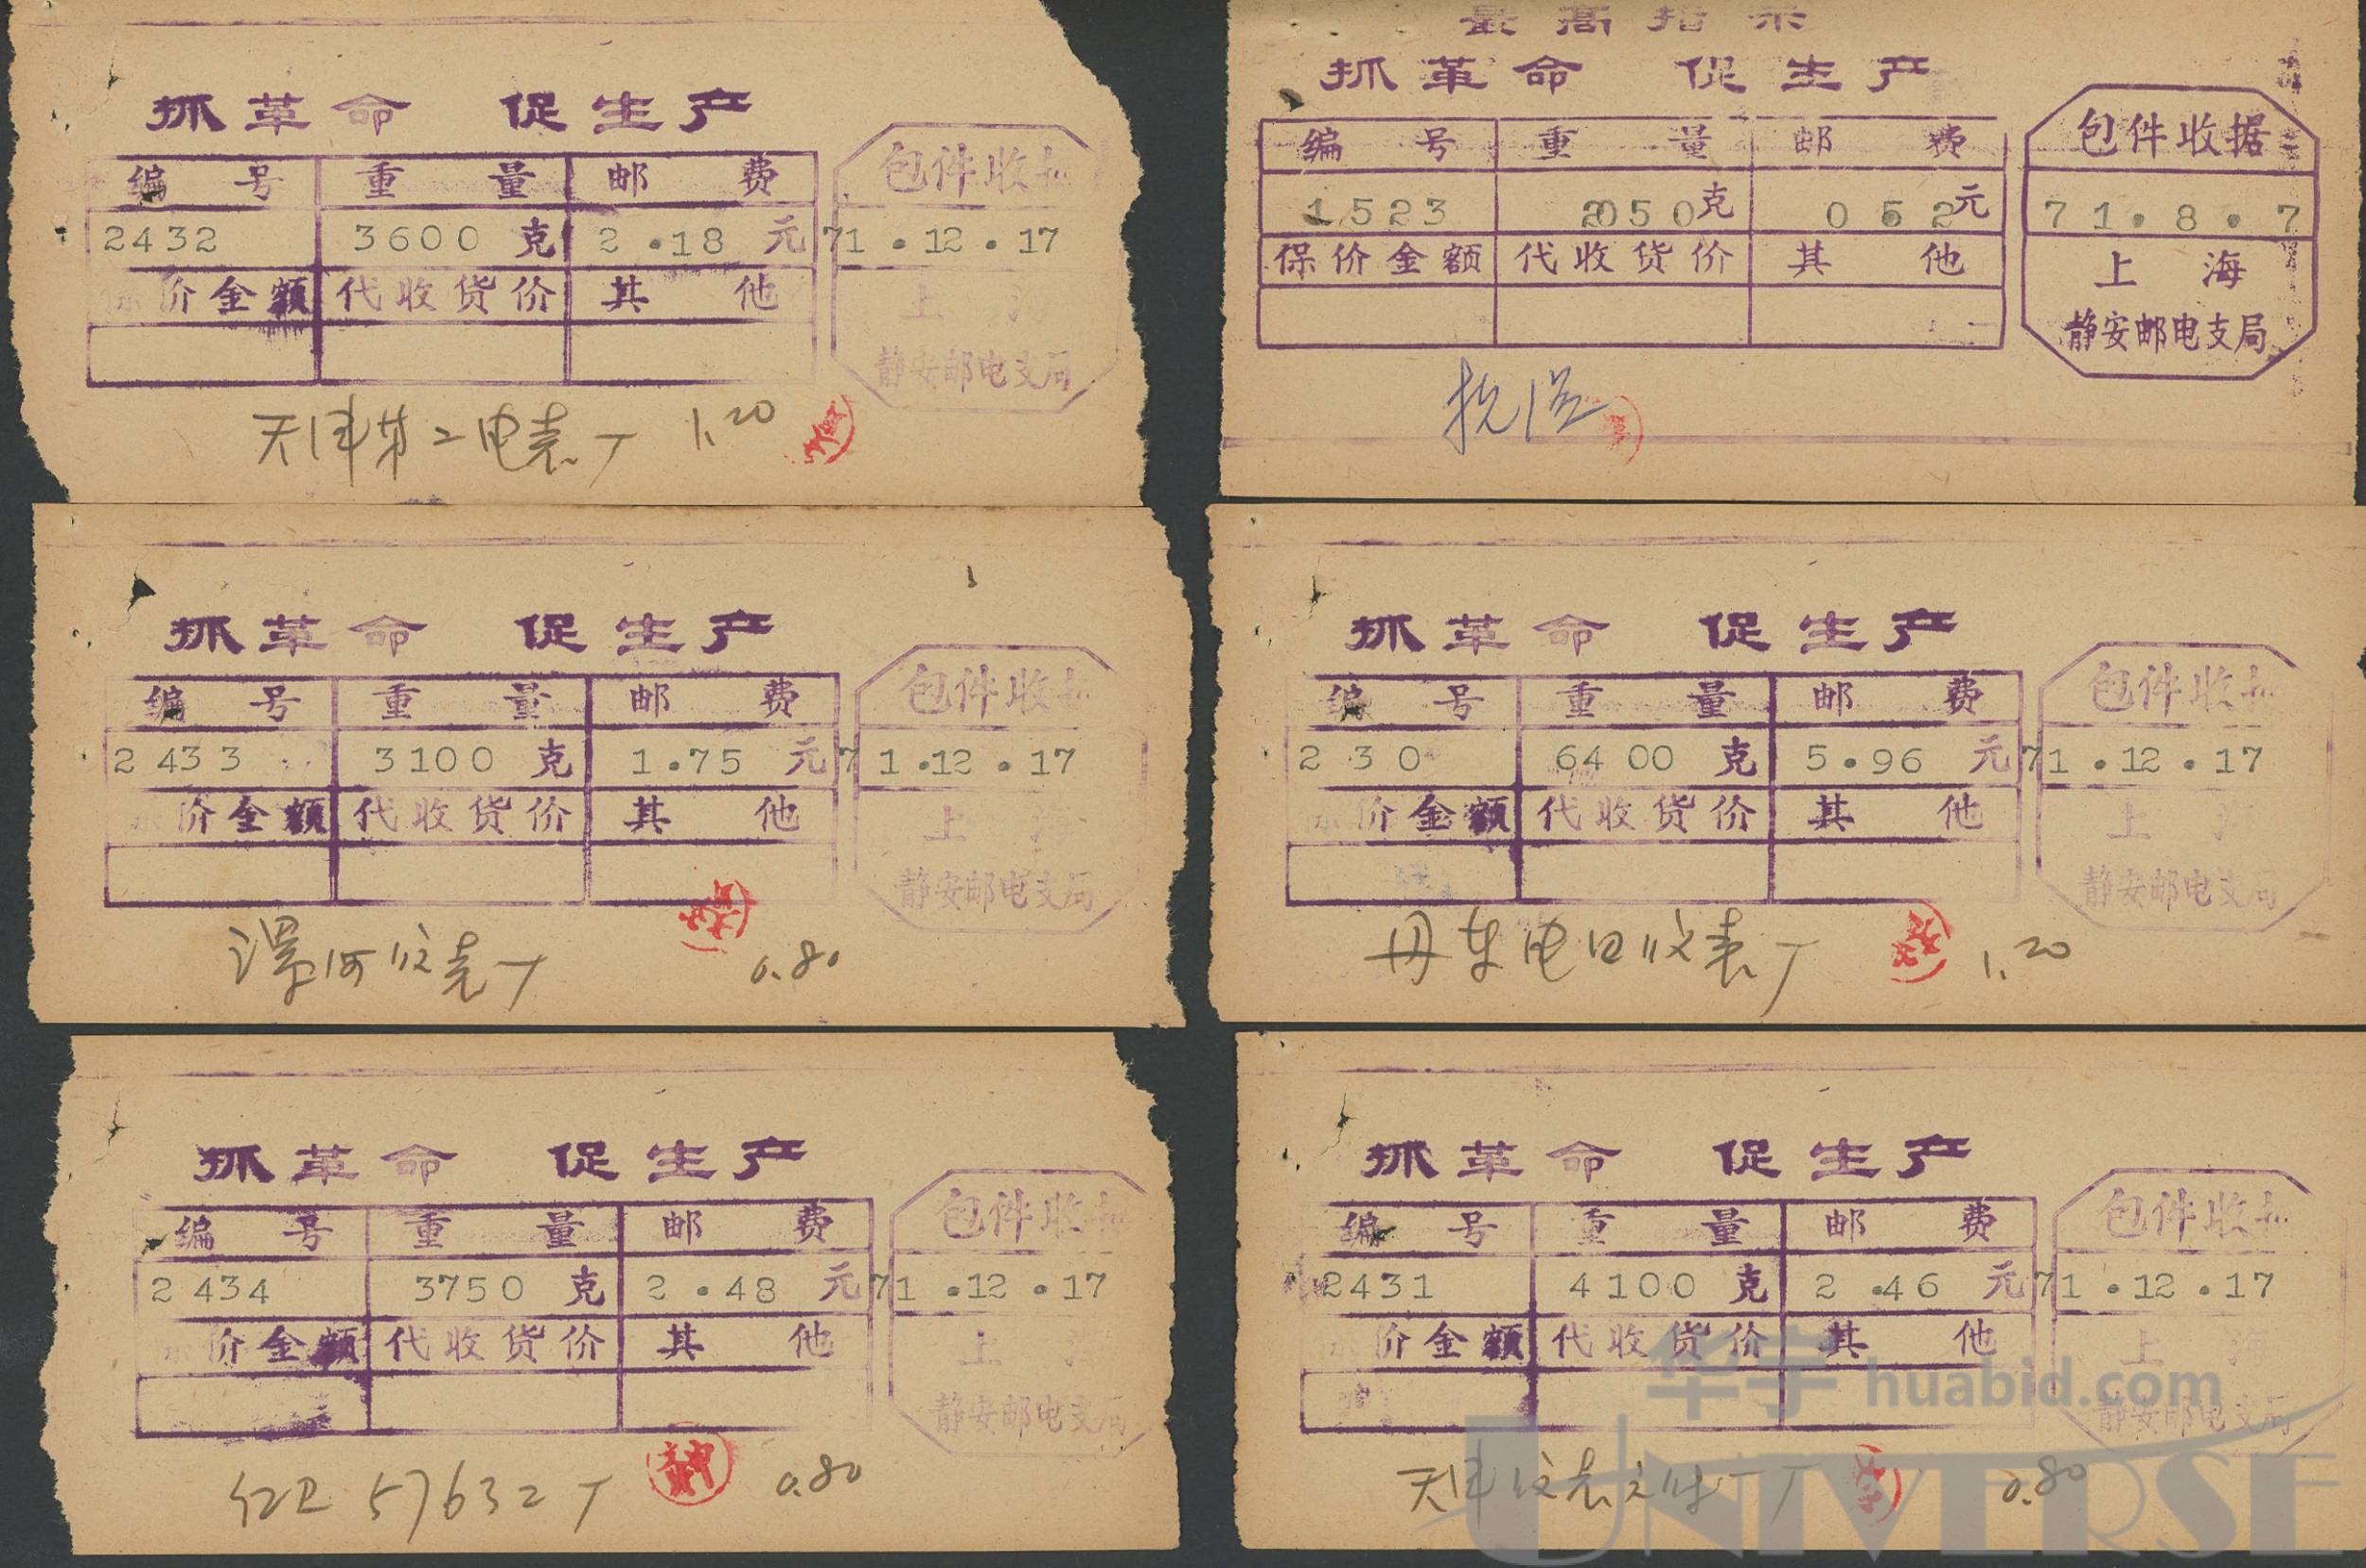 抓革命 促生产
编号 重量 邮费 包件收
2432 3600克 2.18元 71.12.17
价金额 代收货价 其他 上
静安邮电支局
天津第二电表厂 1.20
最高指示
抓革命 促生产
编号 重量 邮费 包件收据
1523 2050克 052元 71.8.7
保价金额 代收货价 其他 上海
静安邮电支局
抓革命 促生产
编号 重量 邮费 包件收
2433 3100克 1.75元 71.12.17
价金额 代收货价 其他 上
静安邮电支局
漯河仪表厂 0.80
抓革命 促生产
编号 重量 邮费 包件收
2 30 6400克 5.96元 71.12.17
价金额 代收货价 其他 上
静安邮电支局
丹东电口仪表厂 1.20
抓革命 促生产
编号 重量 邮费 包件收
2434 3750克 2.48元 71.12.17
价金额 代收货价 其他 上
静安邮电支局
红卫57632厂 0.80
抓革命 促生产
编号 重量 邮费 包件收
2431 4100克 2.46元 71.12.17
价金额 代收货价 其他 上
静安邮电支局
天津仪表 厂 0.80
华宇 huabid.com
UNIVERSE